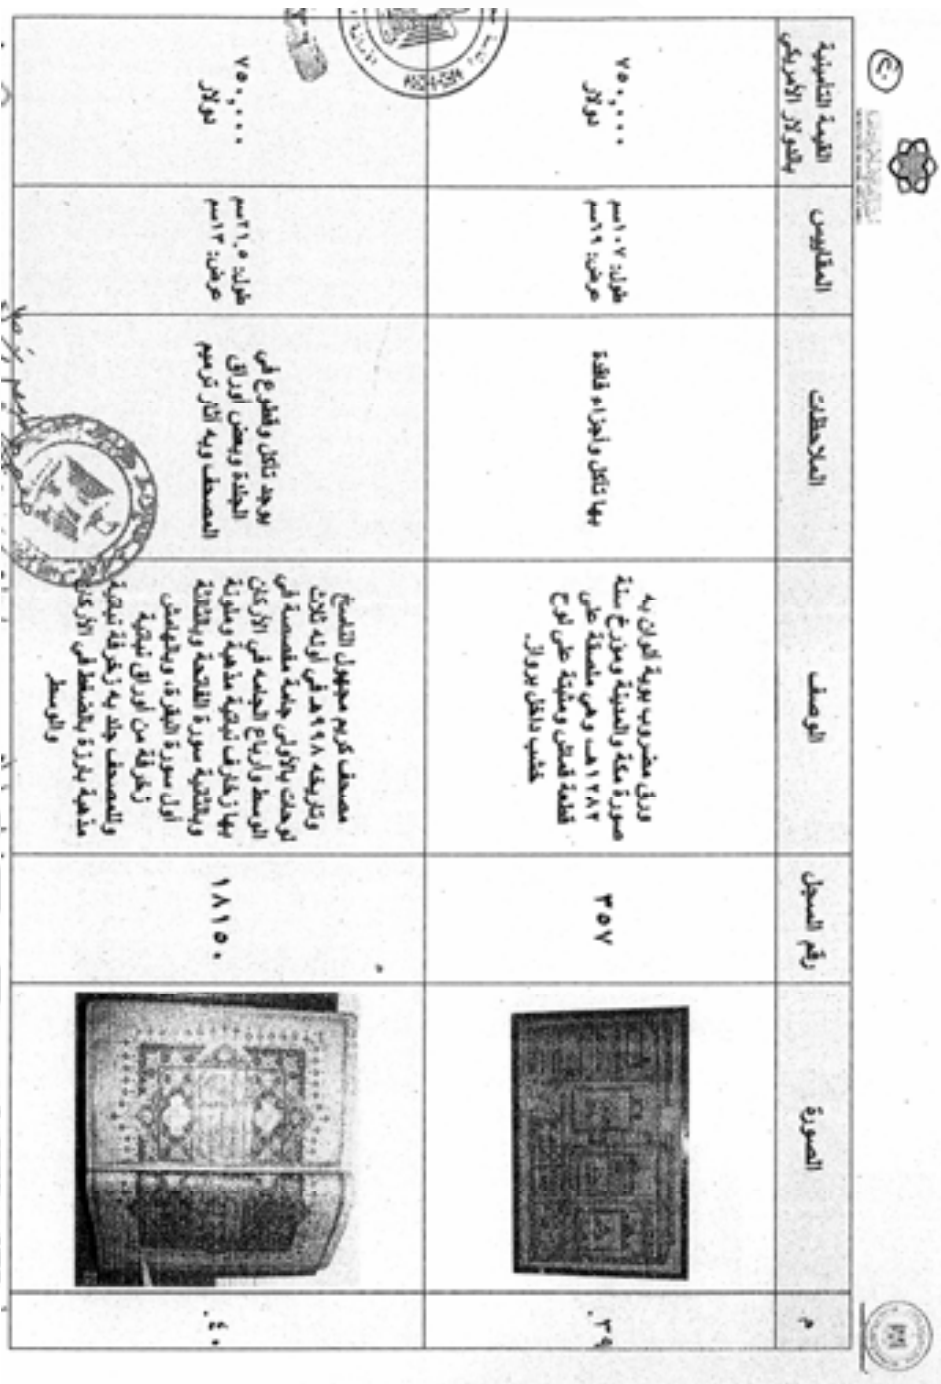 م
الصورة
رقم السجل
الوصف
الملاحظات
المقاييس
القيمة التأمينية
بالدولار الأمريكي
٣٩.
٣٥٧
ورق مضروب بوية ألوان به
صورة مكة والمدينة ومؤرخ سنة
١٢٨٢هـ، وهي ملصقة على
قطعة قماش ومثبتة على لوح
خشب داخل برواز.
بها تآكل وأجزاء فاقدة
طول: ١٠٧سم
عرض: ٦٩سم
٧٥٠,٠٠٠
دولار
٤٠.
١٨١٥٠
مصحف كريم مجهول الناسخ
وتاريخه ٩٩٨هـ في أوله ثلاث
لوحات بالأولى جامة مفصصة في
الوسط وأرباع الجامه في الأركان
بها زخارف نباتية مذهبة وملونة
وبالثانية سورة الفاتحة وبالثالثة
أول سورة البقرة، وبالهامش
زخرفة من أوراق نباتية
وللمصحف جلد به زخرفة نباتية
مذهبة بارزة بالضغط في الأركان
والوسط
يوجد تآكل وقطوع في
الجلدة وبعض أوراق
المصحف وبه آثار ترميم
طول: ٢١,٥سم
عرض: ١٣سم
٧٥٠,٠٠٠
دولار